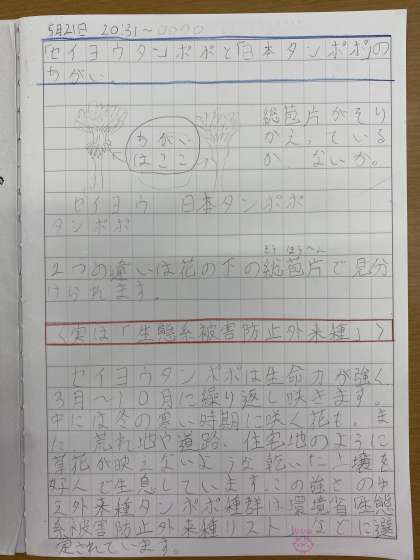 5月21日 20:31〜
「セイヨウタンポポ」と「日本タンポポ」の
ちがい。
総苞片がそり
かえっている
か、ないか。
ちがい
はここ
セイヨウ 日本タンポポ
タンポポ
そうほうへん
2つの違いは花の下の総苞片で見分
けられます。
〈実は「生態系被害防止外来種」〉
セイヨウタンポポは生命力が強く、
3月〜10月に繰り返し咲きます。
中には冬の寒い時期に咲く花も。ま
た、荒れ地や道路、住宅地のように
草花が映えないような乾いた土壌を
好んで生息しています。この強さのゆ
え外来種タンポポ種群は環境省生態
系被害防止外来種リストなどに選
定されています。